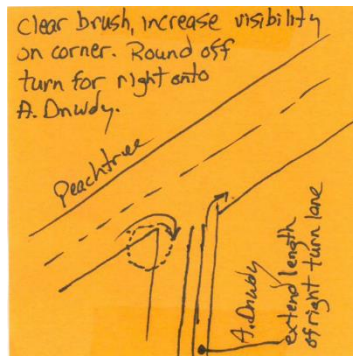 clear brush, increase visibility
on corner. Round off
turn for right onto
A. Dnwdy.
Peachtree
A. Dnwdy
extend length
of right turn lane